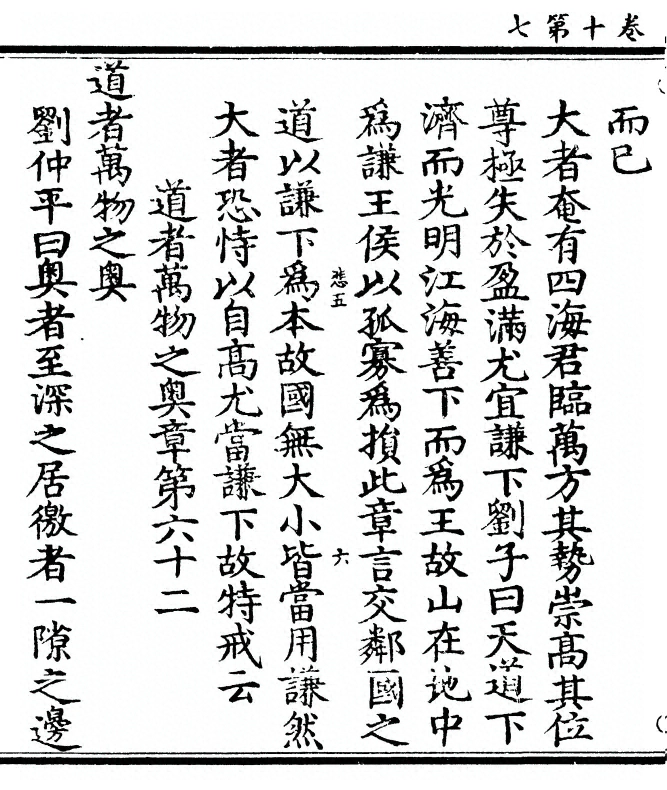 卷十第七
而已
大者奄有四海君臨萬方其勢崇髙其位
尊極失於盈滿尤宜謙下劉子曰天道下
濟而光明江海善下而爲王故山在地中
爲謙王侯以孤寡爲損此章言交鄰國之
悲五 六
道以謙下爲本故國無大小皆當用謙然
大者恐恃以自髙尤當謙下故特戒云
道者萬物之奧章第六十二
道者萬物之奧
劉仲平曰奧者至深之居徼者一隙之邊